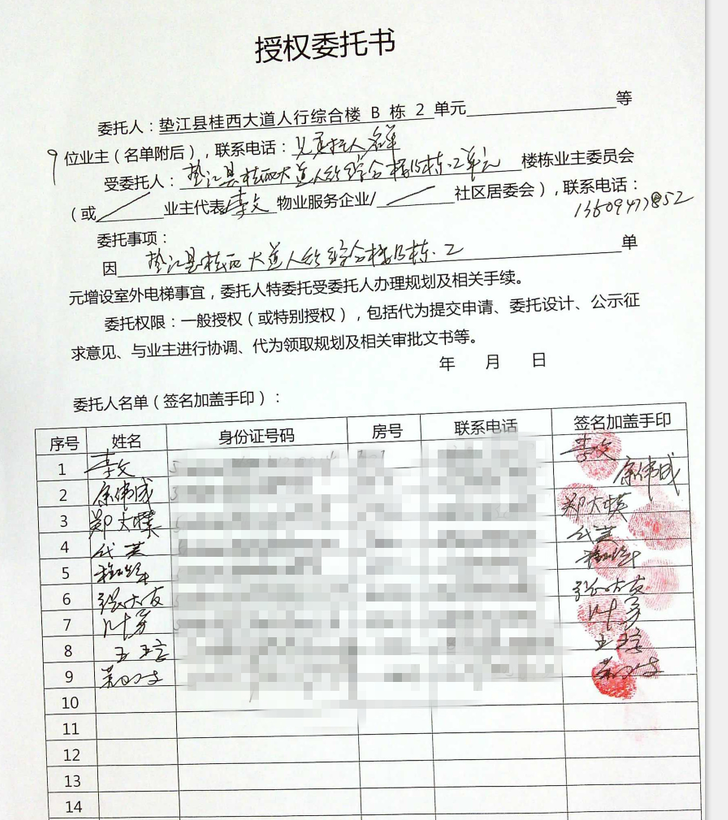 授权委托书
委托人：垫江县桂西大道人行综合楼 B 栋 2 单元 等
9 位业主（名单附后），联系电话：见委托人名单
受委托人：垫江县桂西大道人行综合楼B栋.2单元 楼栋业主委员会
（或 业主代表李文 物业服务企业/ 社区居委会），联系电话：
委托事项：
因 垫江县桂西大道人行综合楼B栋.2 单
元增设室外电梯事宜，委托人特委托受委托人办理规划及相关手续。
委托权限：一般授权（或特别授权），包括代为提交申请、委托设计、公示征
求意见、与业主进行协调、代为领取规划及相关审批文书等。
年 月 日
委托人名单（签名加盖手印）：
序号 姓名 身份证号码 房号 联系电话 签名加盖手印
1 李文 李文
2 余伟成 余伟成
3 郑大模 郑大模
4
5
6 张大友 张大友
7 叶芳 叶芳
8
9
10
11
12
13
14